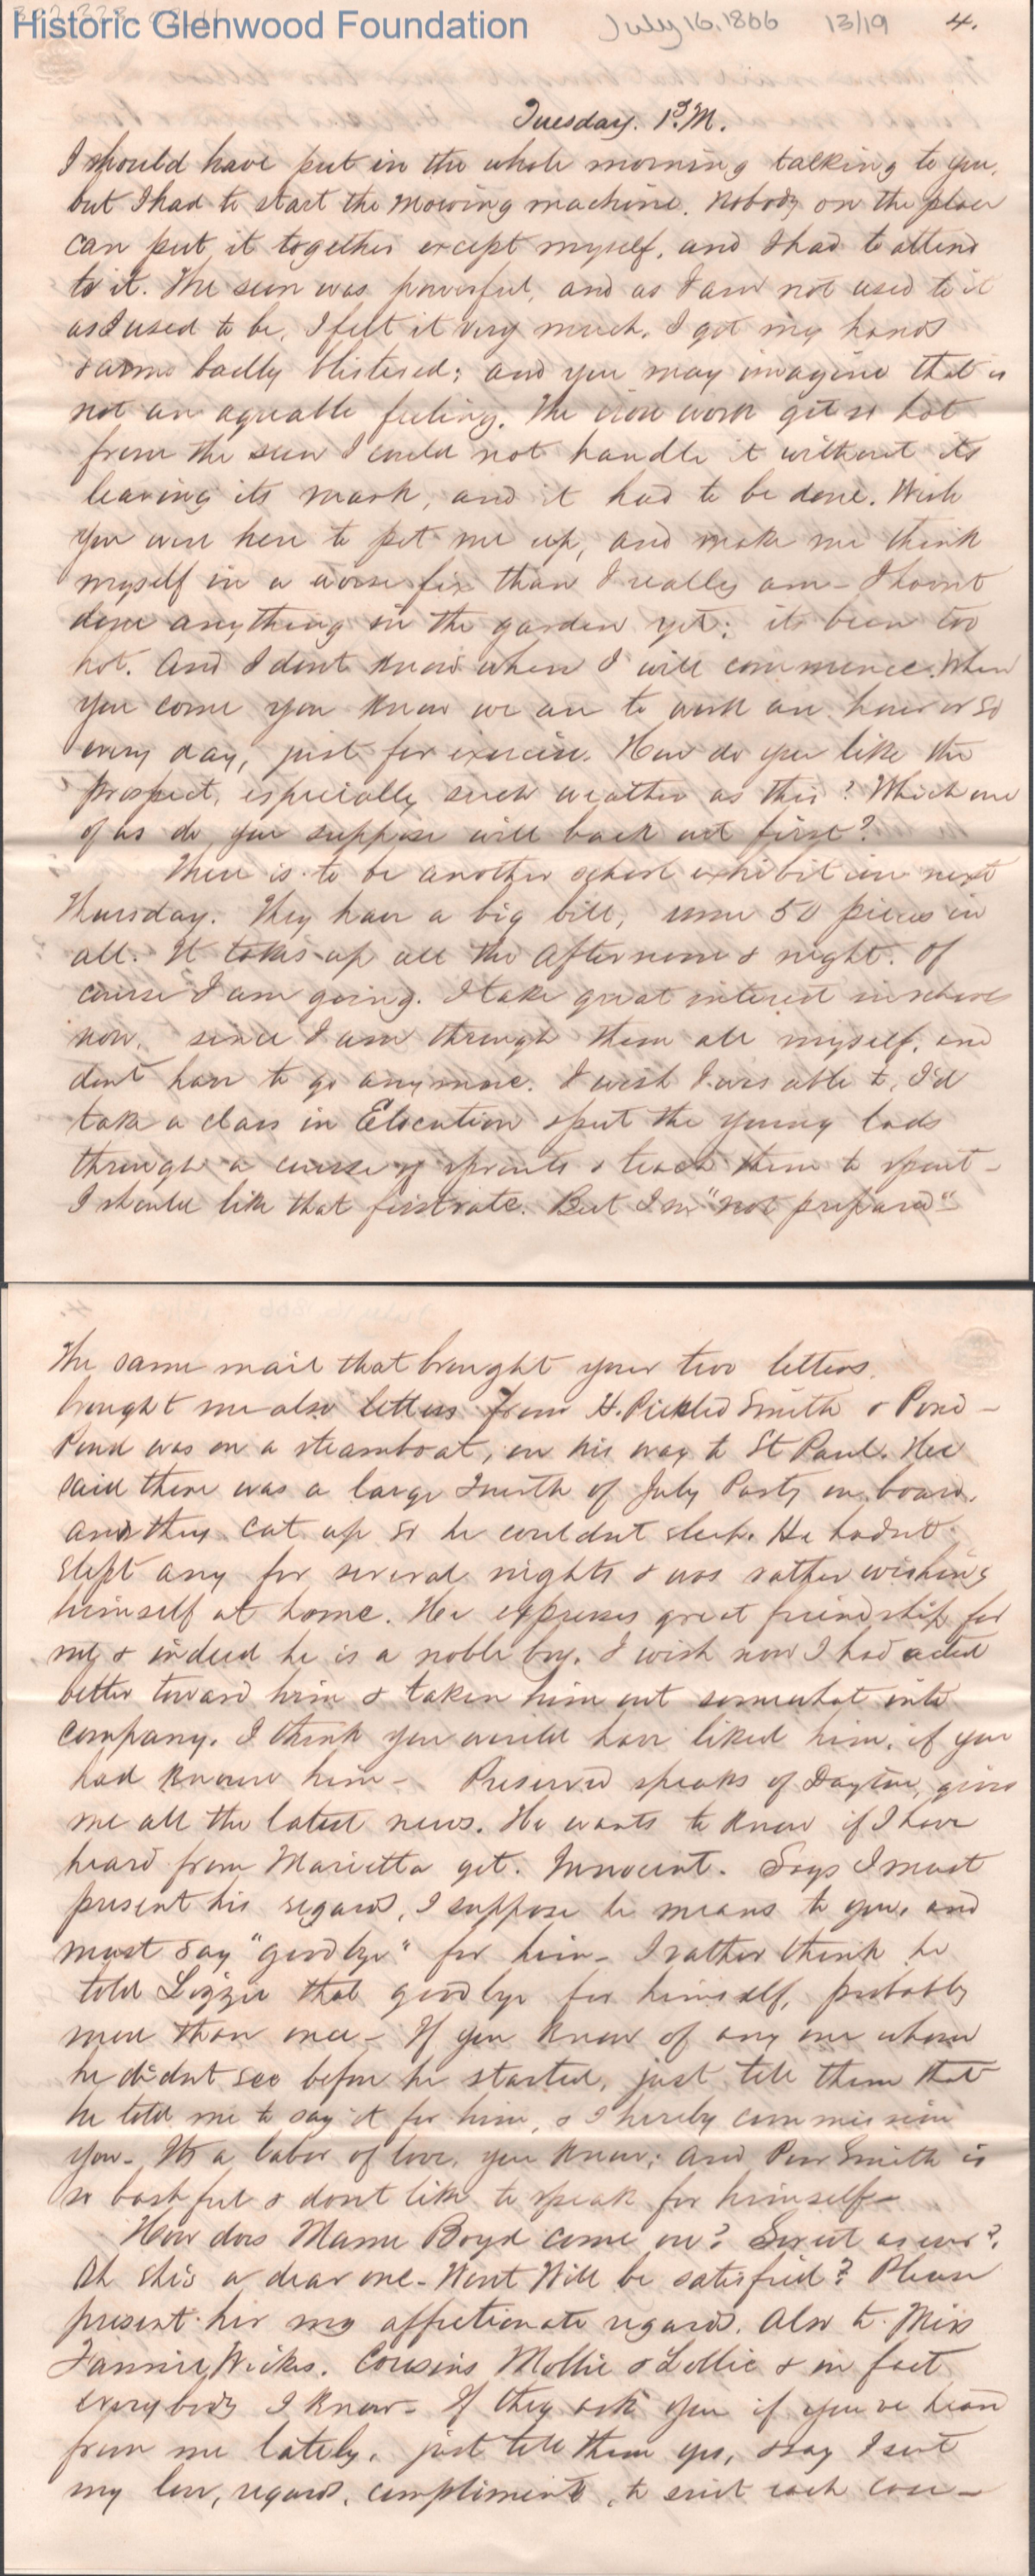 Historic Glenwood Foundation
July 16, 1866 13/19 4.
Tuesday. 1 P.M.
I should have put in the whole morning talking to you,
but I had to start the Mowing machine. Nobody on the place
can put it together except myself, and I had to attend
to it. The sun was powerful, and as I am not used to it
as I used to be, I felt it very much. I got my hands
& arms badly blistered; and you may imagine that is
not an agreable feeling. The iron work got so hot
from the sun I could not handle it without its
leaving its mark, and it had to be done. Wish
you were here to pet me up, and make me think
myself in a worse fix than I really am – I havnt
done anything in the garden yet; its been too
hot. And I dont know when I will commence. When
you come you know we are to work an hour or so
every day, just for exercise. How do you like the
prospect, especially such weather as this? Which one
of us do you suppose will back out first?
There is to be another school exhibition next
Thursday. They have a big bill, some 50 pieces in
all. It takes up all the afternoon & night. Of
course I am going. I take great interest in schools
now, since I am through them all myself, and
dont have to go anymore. I wish I was able to, I'd
take a class in Elocution & put the young lads
through a course of sprouts & teach them to spout –
I should like that firstrate. But I'm "not prepared"
The same mail that brought your two letters,
brought me also letters from H. Pickled Smith & Pond –
Pond was on a steamboat, on his way to St Paul. He
said there was a large Fourth of July Party on board,
and they cut up so he couldnt sleep. He hadnt
slept any for several nights & was rather wishing
himself at home. He expresses great friendship for
me, & indeed he is a noble boy. I wish now I had acted
better toward him & taken him out somewhat into
company. I think you would have liked him, if you
had known him – Preserved speaks of Dayton, gives
me all the latest news. He wants to know if I have
heard from Marietta yet. Innocent. Says I must
present his regards, I suppose he means to you, and
must say "good bye" for him – I rather think he
told Lizzie that good bye for himself, probably
more than once – If you know of any one whom
he didnt see before he started, just tell them that
he told me to say it for him, & I hereby commission
you – Its a labor of love, you know; and Poor Smith is
so bashful & dont like to speak for himself –
How does Mame Boyd come on? Sweet as ever?
Oh she's a dear one – Wont Will be satisfied? Please
present her my affectionate regards. Also to Miss
Fannie Wickes. Cousins Mollie & Lollie & in fact
everybody I know – If they ask you if you've heard
from me lately, just tell them yes, & say I sent
my love, regards, compliments, to suit each case –